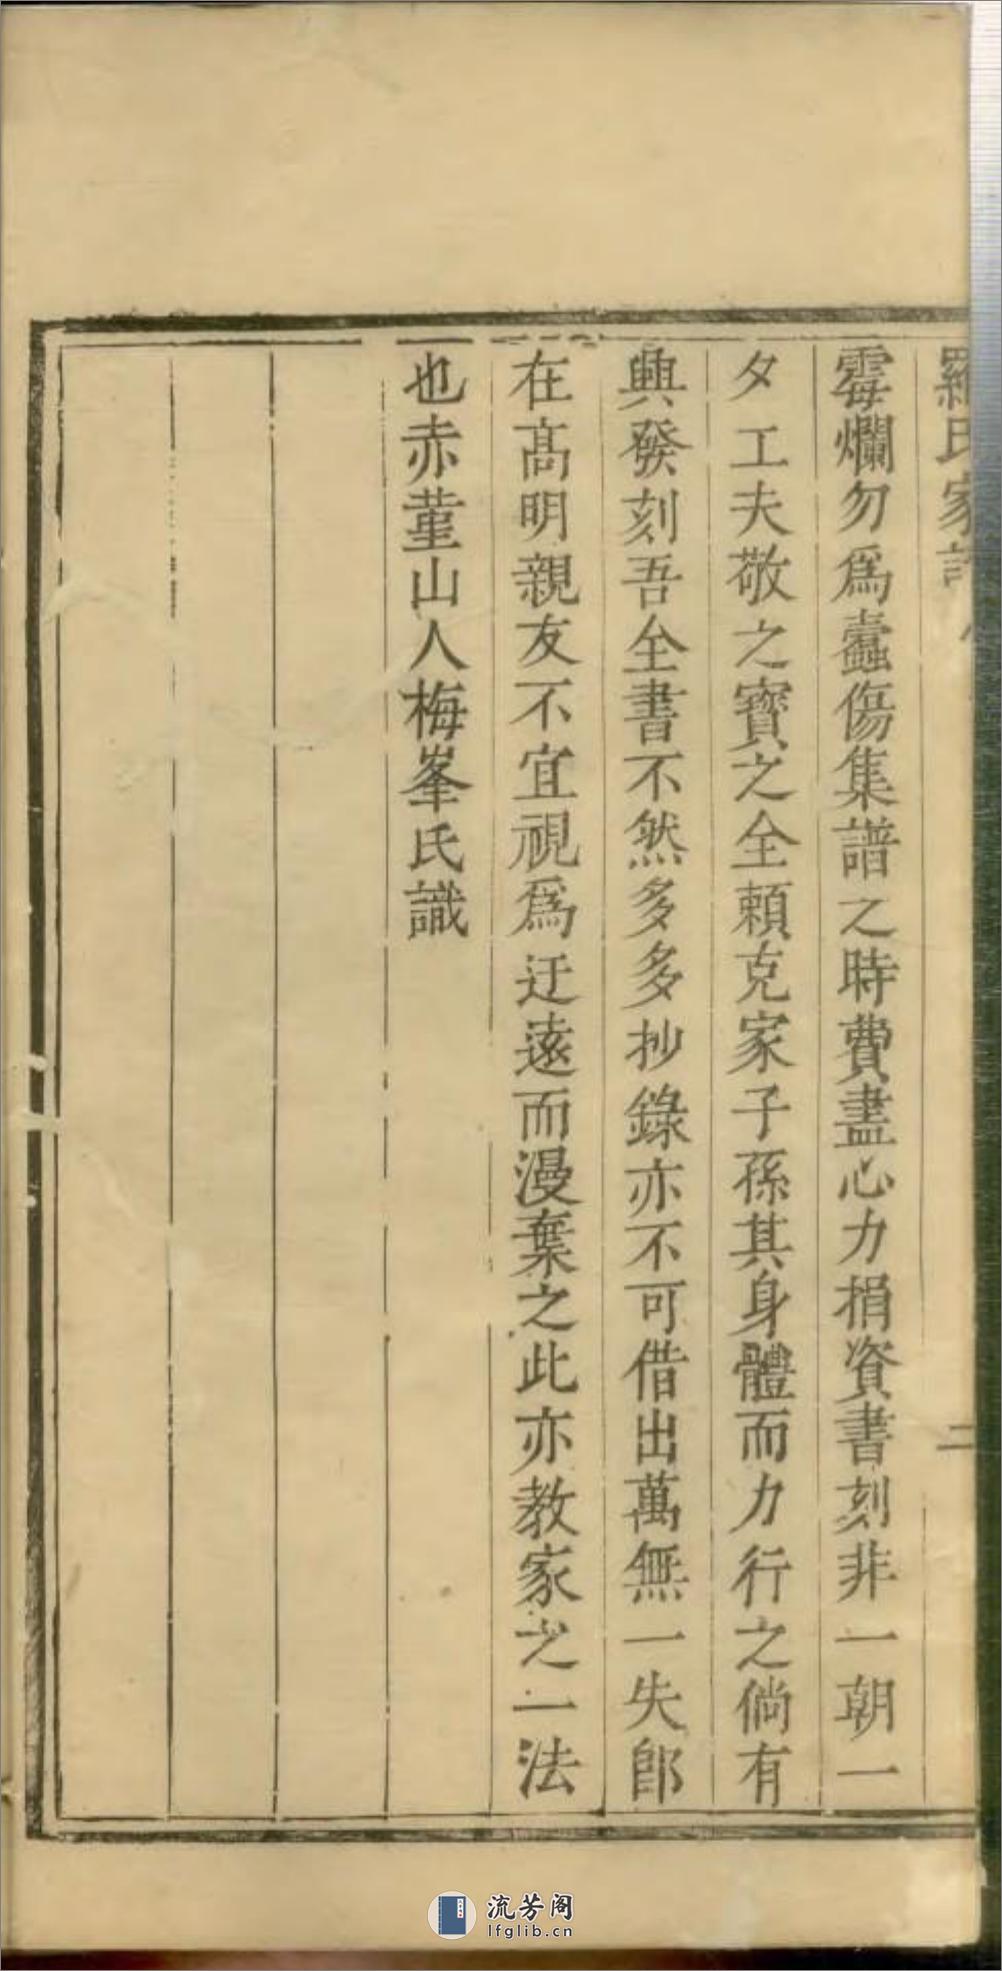 羅氏家譜
二
霉爛勿爲蠹傷集譜之時費盡心力捐資書刻非一朝一
夕工夫敬之寶之全賴克家子孫其身體而力行之倘有
興發刻吾全書不然多多抄錄亦不可借出萬無一失卽
在高明親友不宜視爲迂遠而漫棄之此亦教家之一法
也赤堇山人梅峯氏識
流芳阁
lfglib.cn